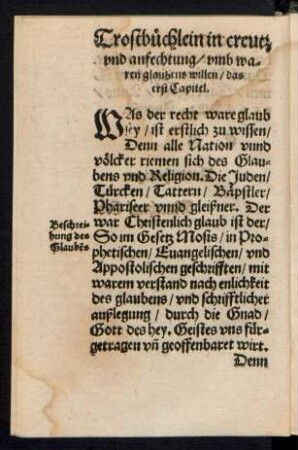 Trostbüchlein in creutz
vnd anfechtung / vmb wa-
ren glaubens willen / das
erst Capitel.
WAs der recht ware glaub
sey / ist erstlich zu wissen /
Denn alle Nation vnnd
völcker riemen sich des Glau-
bens vnd Religion. Die Juden /
Türcken / Tattern / Bäpstler /
Phariseer vnnd gleißner. Der
war Christenlich glaub ist der /
Beschrei-
bung des
Glaubēs
So im Gesetz Mosis / in Pro-
phetischen / Euangelischen / vnd
Appostolischen geschrifften / mit
warem verstand nach enlichkeit
des glaubens / vnd schrifftlicher
außlegung / durch die Gnad /
Gott des hey. Geistes vns für-
getragen vn̄ geoffenbaret wirt.
Denn